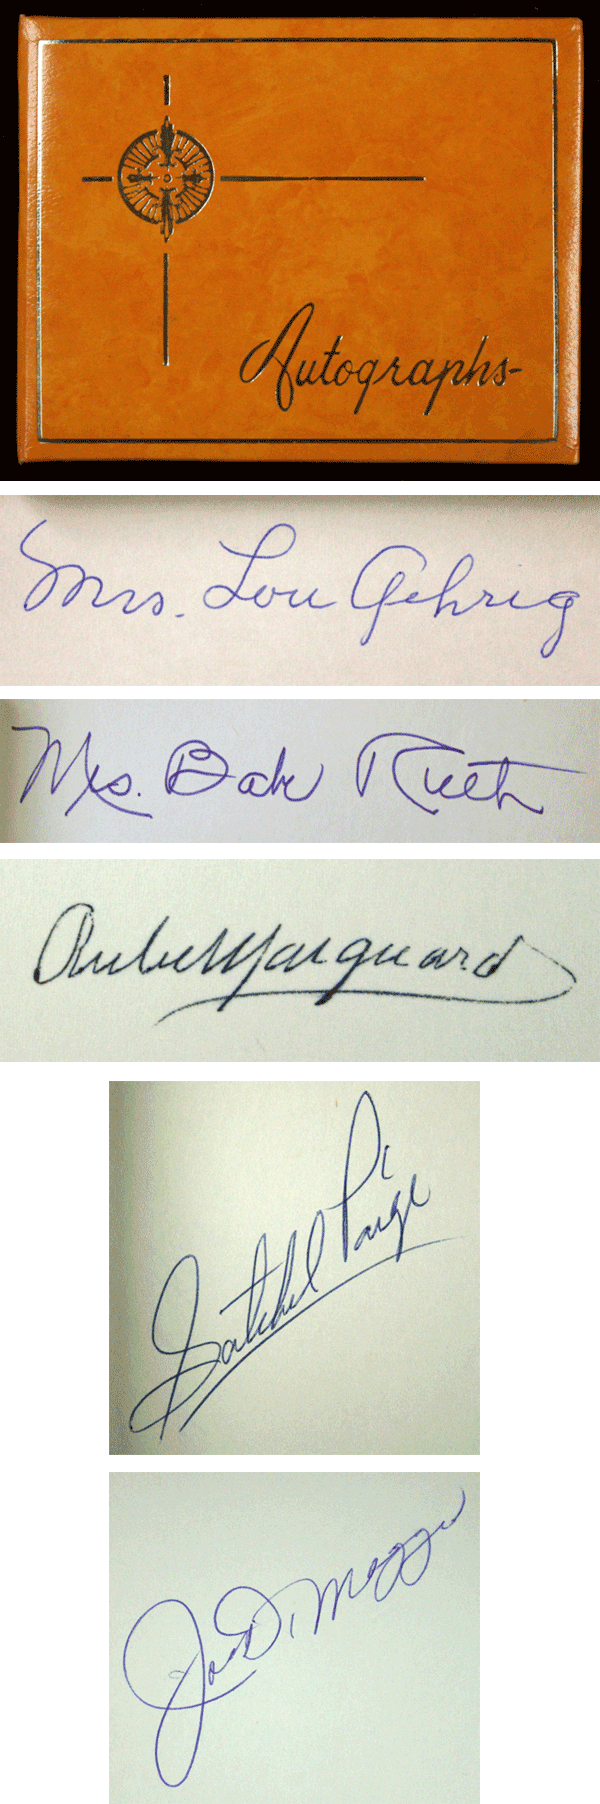 Autographs
Mrs. Lou Gehrig
Mrs. Babe Ruth
Rube Marquard
Satchel Paige
Joe DiMaggio